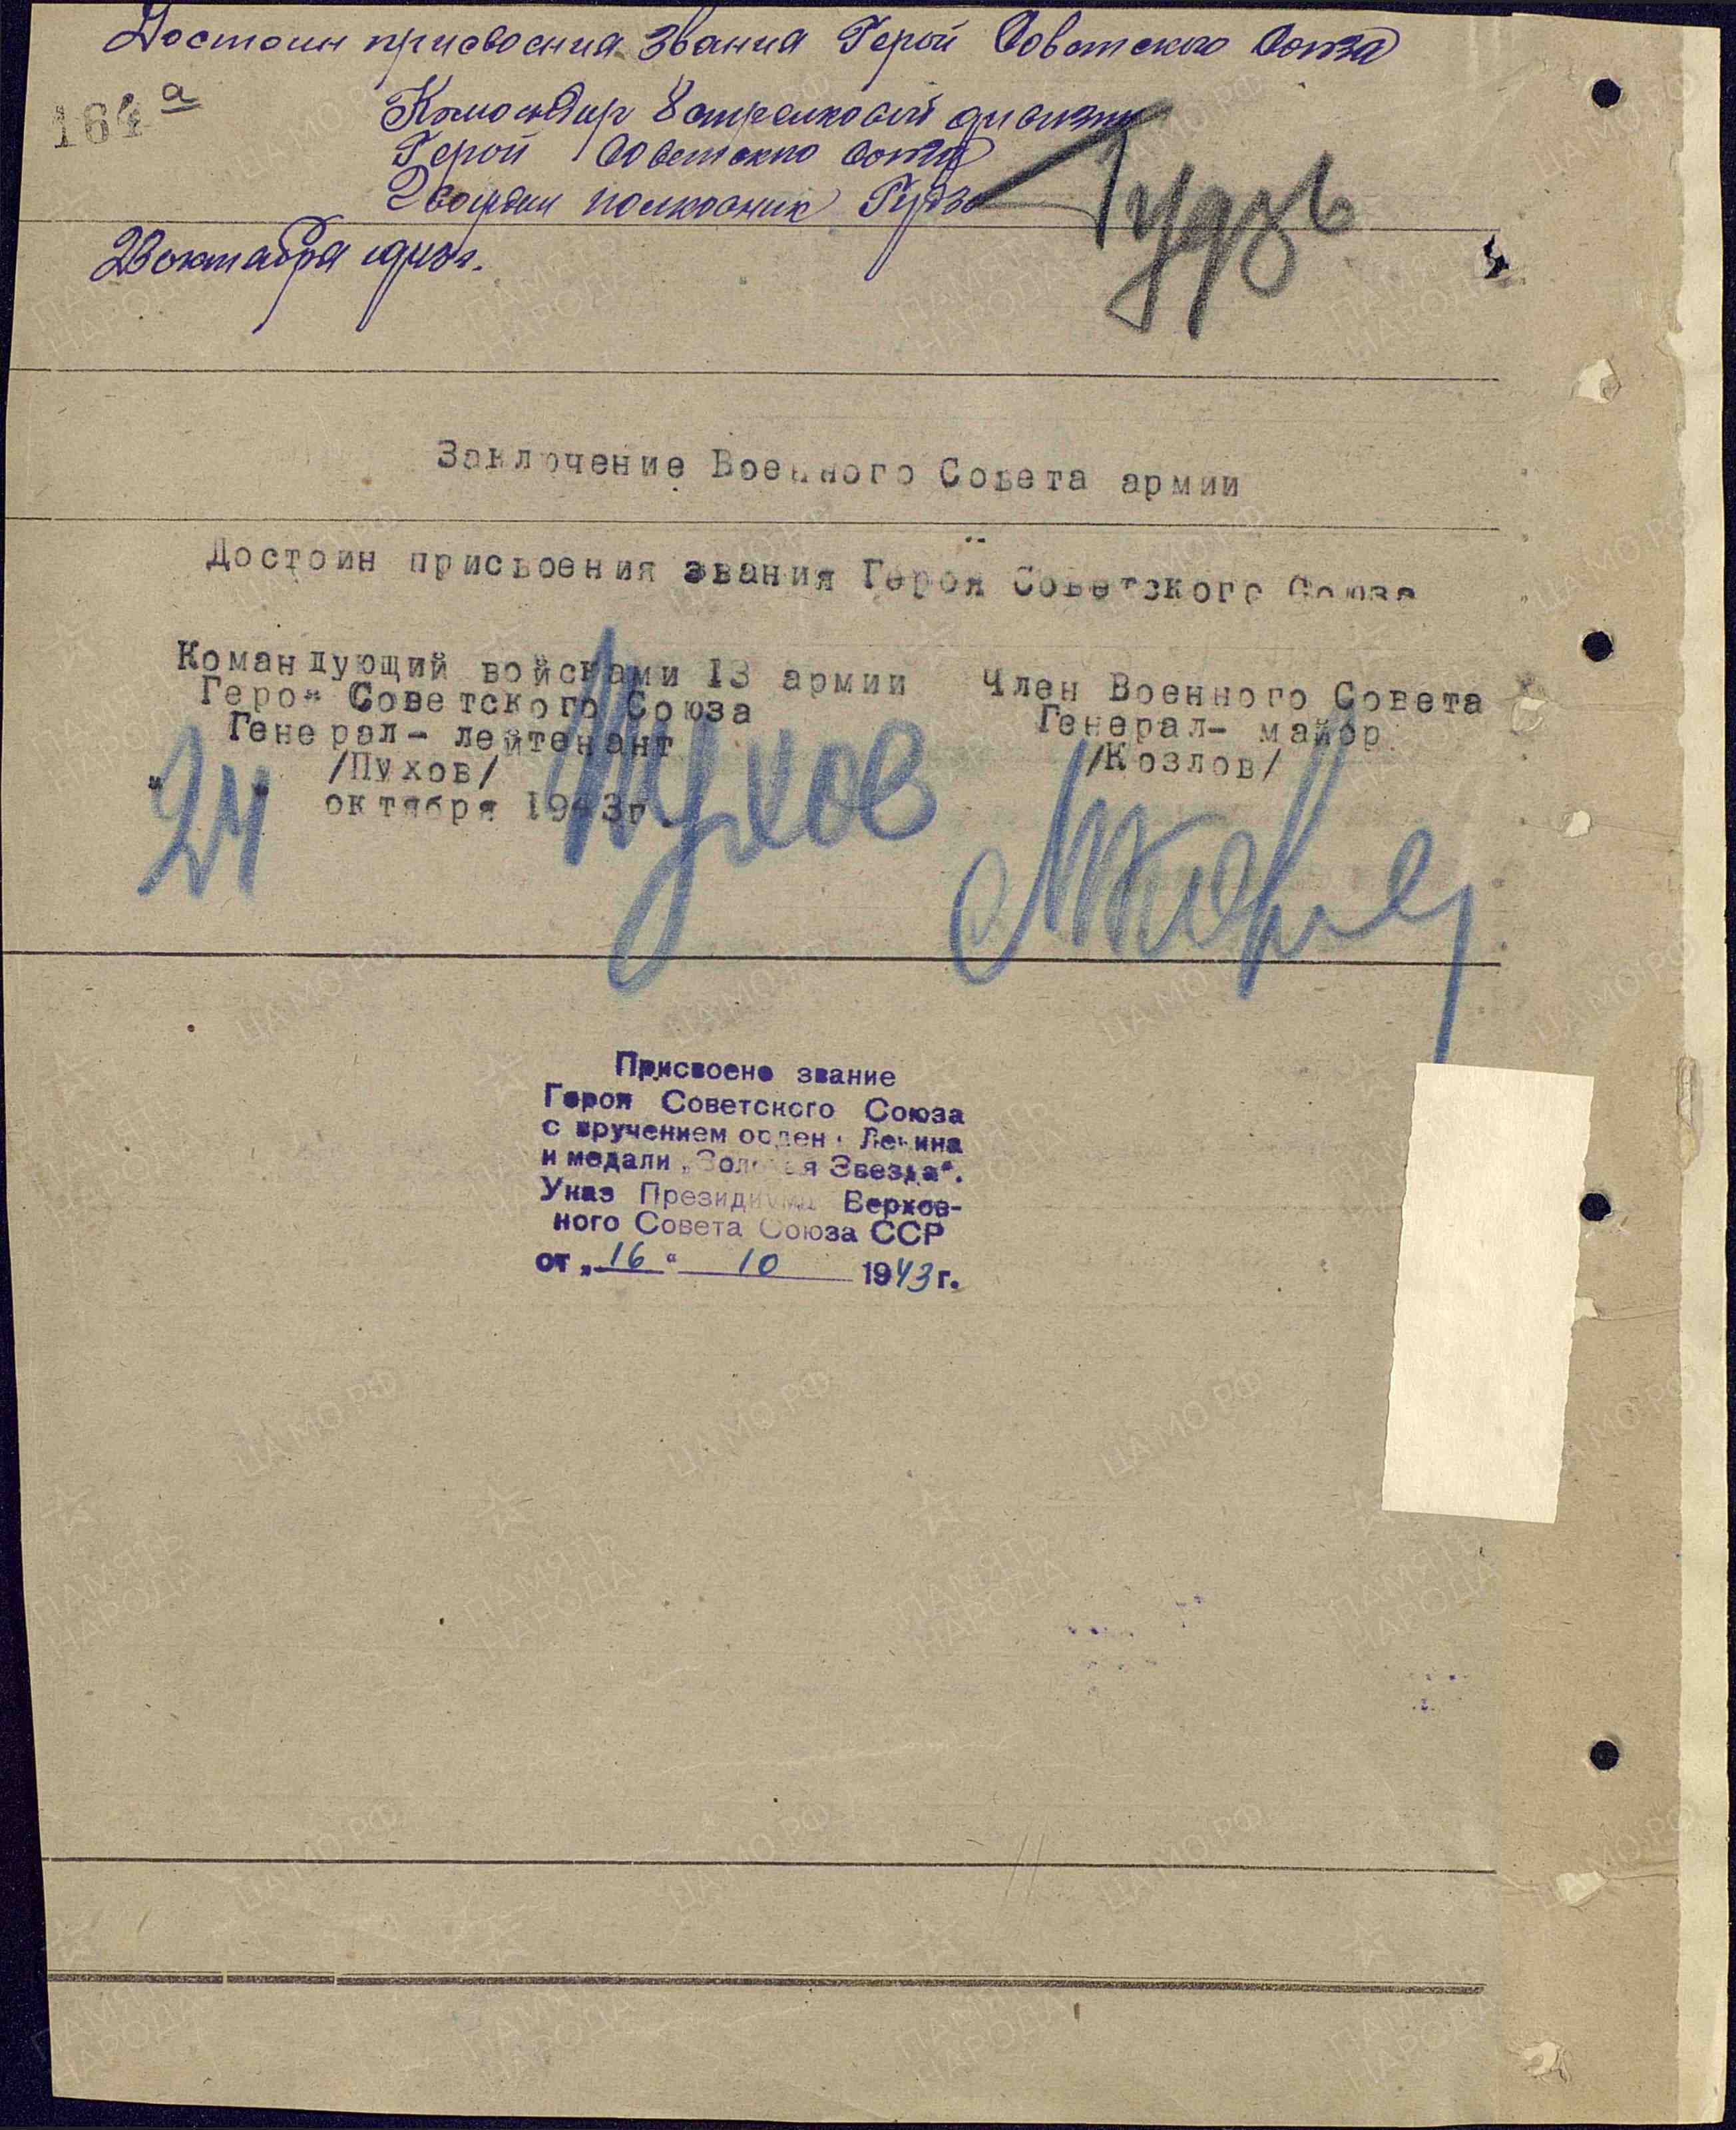 Достоин присвоения звания Герой Советского Союза
164а
Командир 8 стрелковой дивизии
Герой Советского Союза
Гвардии полковник Гудзь
Гудзь
23 октября 1943г.
Заключение Военного Совета армии
Достоин присвоения звания Героя Советского Союза
Командующий войсками 13 армии
Герой Советского Союза
Генерал- лейтенант
/Пухов/
Пухов
"24" октября 1943г.
Член Военного Совета
Генерал- майор
/Козлов/
Присвоено звание
Героя Советского Союза
с вручением ордена Ленина
и медали „Золотая Звезда“.
Указ Президиума Верхов-
ного Совета Союза ССР
от „16“ 10 1943г.
ЦАМО.РФ
ПАМЯТЬ
НАРОДА